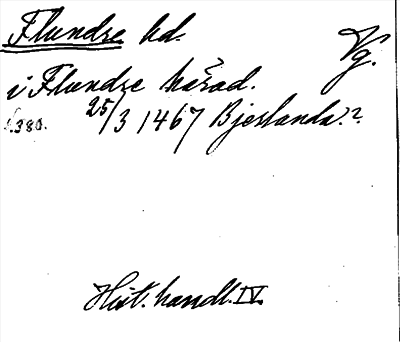 Flundre hd. Vg.
i Flundre härad.
s.380. 25/3 1467 Bjerlanda.?
Hist. handl. IV.